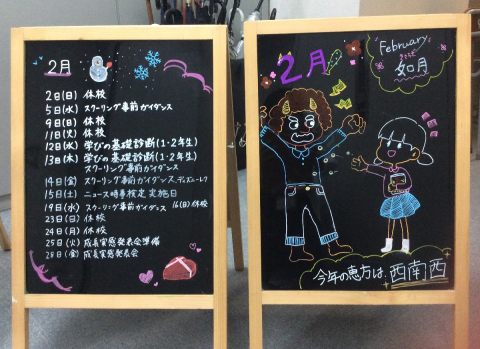 2月
2日(日) 休校
5日(水) スクーリング事前ガイダンス
9日(日) 休校
11日(火) 休校
12日(水) 学びの基礎診断(1・2年生)
13日(木) 学びの基礎診断(1・2年生)
スクーリング事前ガイダンス
14日(金) スクーリング事前ガイダンス、ディズニーレク
15日(土) ニュース時事検定実施日
19日(水) スクーリング事前ガイダンス 16(日)休校
23日(日) 休校
24日(月) 休校
25日(火) 成長実感発表会準備
28日(金) 成長実感発表会
2月
February
きさらぎ
如月
今年の恵方は、西南西